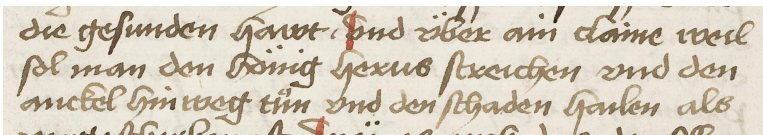 die gesunden hawt. Vnd v̈ber ain claine weil
sol man den hönig herus streichen vnd den
anckel hin weg tůn vnd den schaden hailen als